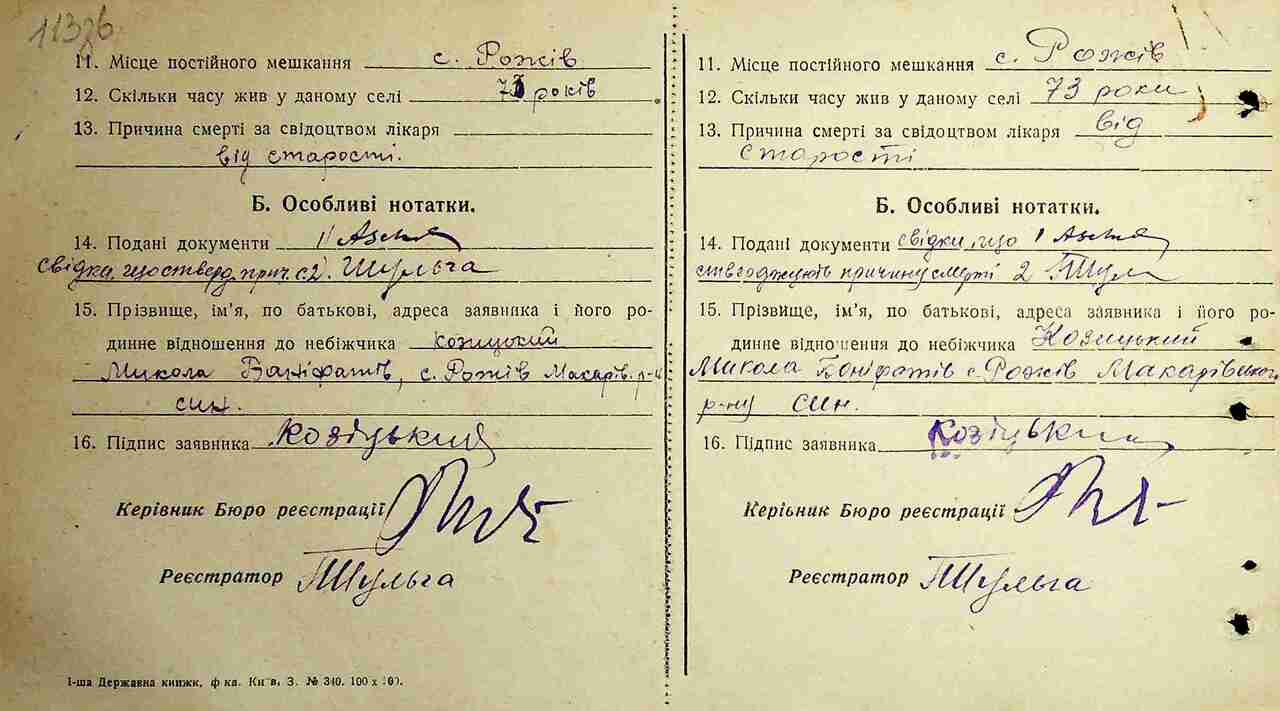 11326
11. Місце постійного мешкання с. Рожів
12. Скільки часу жив у даному селі 73 років
13. Причина смерті за свідоцтвом лікаря
від старості.
Б. Особливі нотатки.
14. Подані документи 1)
свідки, що ствердж. прич. с 2). Шульга
15. Прізвище, ім’я, по батькові, адреса заявника і його ро-
динне відношення до небіжчика Козицький
Микола Баніфатів, с. Рожів Макарів. р-н
син.
16. Підпис заявника Козіцький
Керівник Бюро реєстрації
Реєстратор ПШульга
1-ша Державна книжк. ф-ка. Київ. З. № 340. 100 х 100.
11. Місце постійного мешкання с. Рожів
12. Скільки часу жив у даному селі 73 роки
13. Причина смерті за свідоцтвом лікаря від
старості
Б. Особливі нотатки.
14. Подані документи свідки, що 1
ствержують причину смерті 2 ПШул
15. Прізвище, ім’я, по батькові, адреса заявника і його ро-
динне відношення до небіжчика Козицький
Микола Боніфатів с. Рожів Макарівського
р-ну син.
16. Підпис заявника Козіцький
Керівник Бюро реєстрації
Реєстратор ПШульга